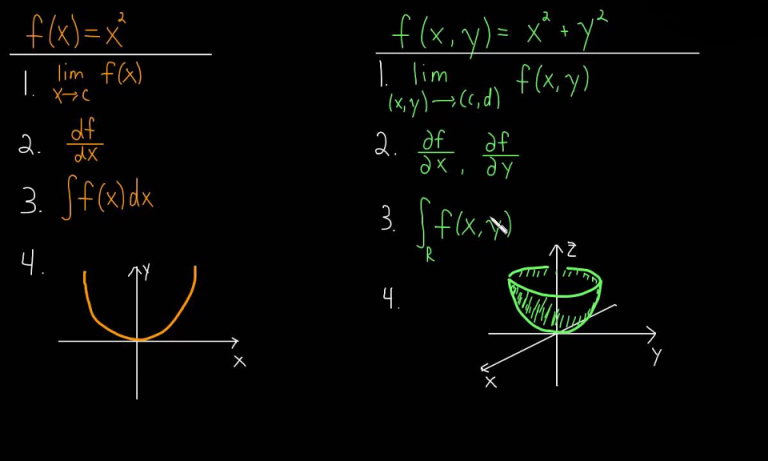 f(x) = x²
1. lim x→c f(x)
2. df/dx
3. ∫f(x)dx
4.
y
x
f(x, y) = x² + y²
1. lim (x,y)→(c,d) f(x,y)
2. ∂f/∂x, ∂f/∂y
3. ∫_R f(x,y)
4.
z
y
x